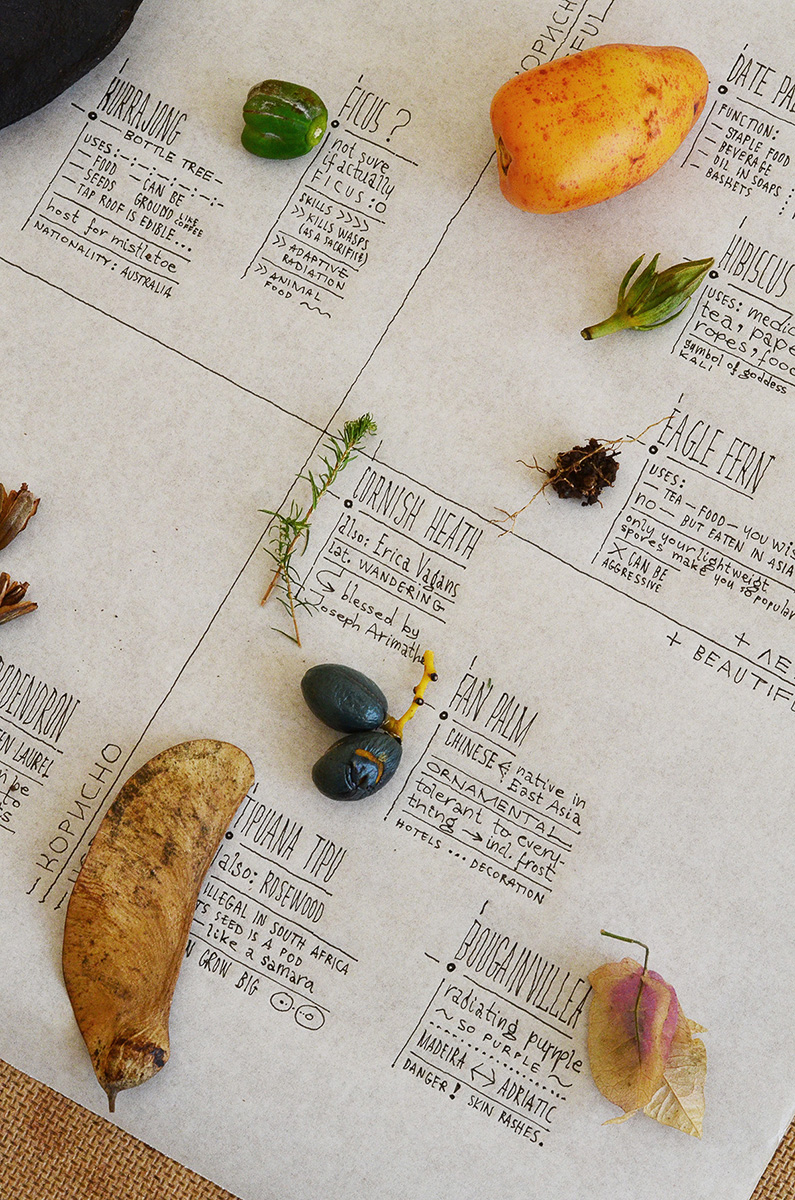 KURRAJONG
BOTTLE TREE
USES:
— FOOD — CAN BE
— SEEDS GROUND LIKE COFFEE
TAP ROOF IS EDIBLE...
host for mistletoe
NATIONALITY: AUSTRALIA
FICUS ?
not sure
if actually
FICUS :O
SKILLS >>>>
>> KILLS WASPS
(AS A SACRIFICE)
>> ADAPTIVE
RADIATION
>> ANIMAL
FOOD
КОРИСНО
FUL
DATE PAL
FUNCTION:
— STAPLE FOOD
— BEVERAGE
— OIL IN SOAPS
— BASHETS
HIBISCUS
USES: medic
tea, pape
ropes, food
symbol of goddess
KALI
EAGLE FERN
USES:
— TEA — FOOD — YOU WIS
NO — BUT EATEN IN ASIA
only your lightweigt
spores make you so popular
X CAN BE
AGGRESSIVE
+ ΛΕ
+ BEAUTIFU
CORNISH HEATH
also: Erica Vagans
lat. WANDERING
blessed by
Joseph Arimathe
FAN PALM
CHINESE native in
East Asia
ORNAMENTAL
tolerant to every-
thing → incl. frost
HOTELS ... DECORATION
ODENDRON
EN LAUREL
n be
to
ts
КОРИСНО
TIPUANA TIPU
also: ROSEWOOD
ILLEGAL IN SOUTH AFRICA
TS SEED IS A POD
— like a samara
N GROW BIG
BOUGAINVILLEA
radiating purple
~ SO PURPLE ~
MADEIRA <-> ADRIATIC
DANGER! SKIN RASHES.